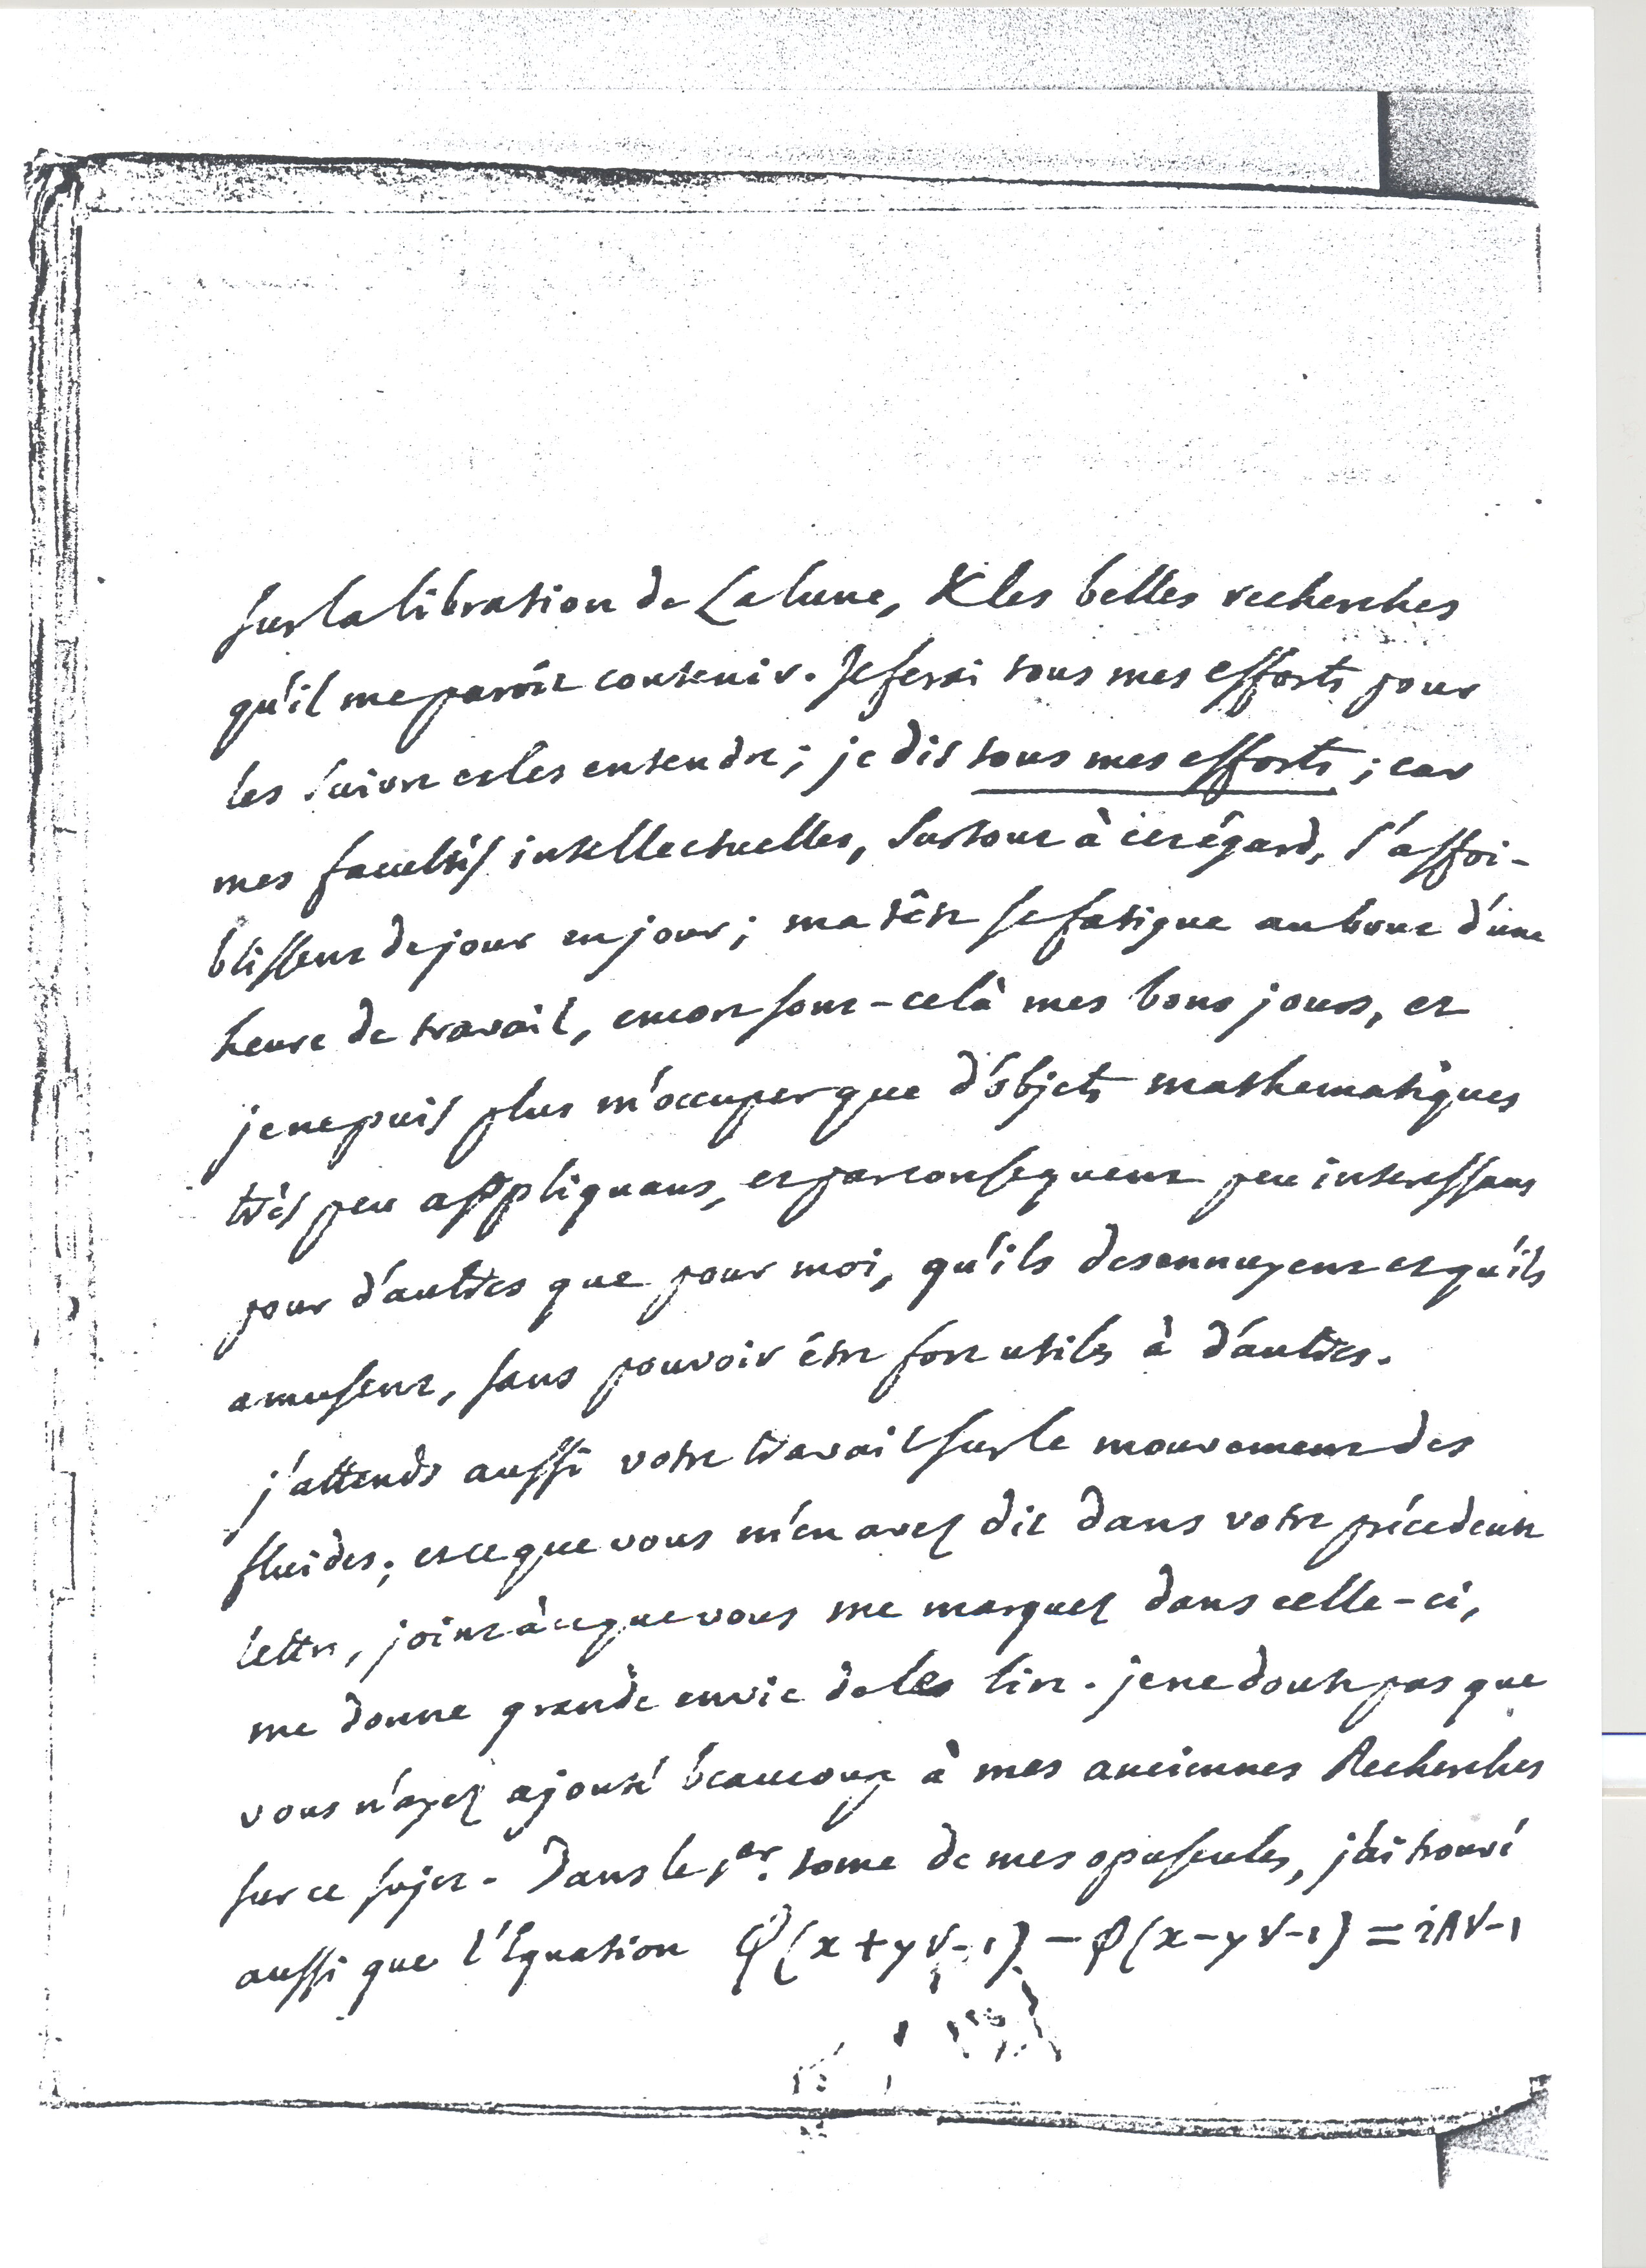 sur la libration de La lune, & les belles recherches
qu'il me paroît contenir. Je ferai tous mes efforts pour
les suivre et les entendre; je dis tous mes efforts; car
mes facultés intellectuelles, surtout à cet égard, s'affoi-
blissent de jour en jour; ma tête se fatigue au bout d'une
heure de travail, encore sont-celà mes bons jours, et
je ne puis plus m'occuper que d'objets mathematiques
très peu appliquans, et par consequent peu interessans
pour d'autres que pour moi, qu'ils desennuyent et qu'ils
amusent, sans pouvoir être fort utiles à d'autres.
j'attends aussi votre travail sur le mouvement des
fluides; et ce que vous m'en avez dit dans votre précedente
lettre, joint à ce que vous me marquez dans celle-ci,
me donne grande envie de les lire. je ne doute pas que
vous n'ayez ajouté beaucoup à mes anciennes Recherches
sur ce sujet. Dans le 1er. tome de mes opuscules, j'ai trouvé
aussi que l'Equation φ(x+y√-1) - φ(x-y√-1) = 2A√-1